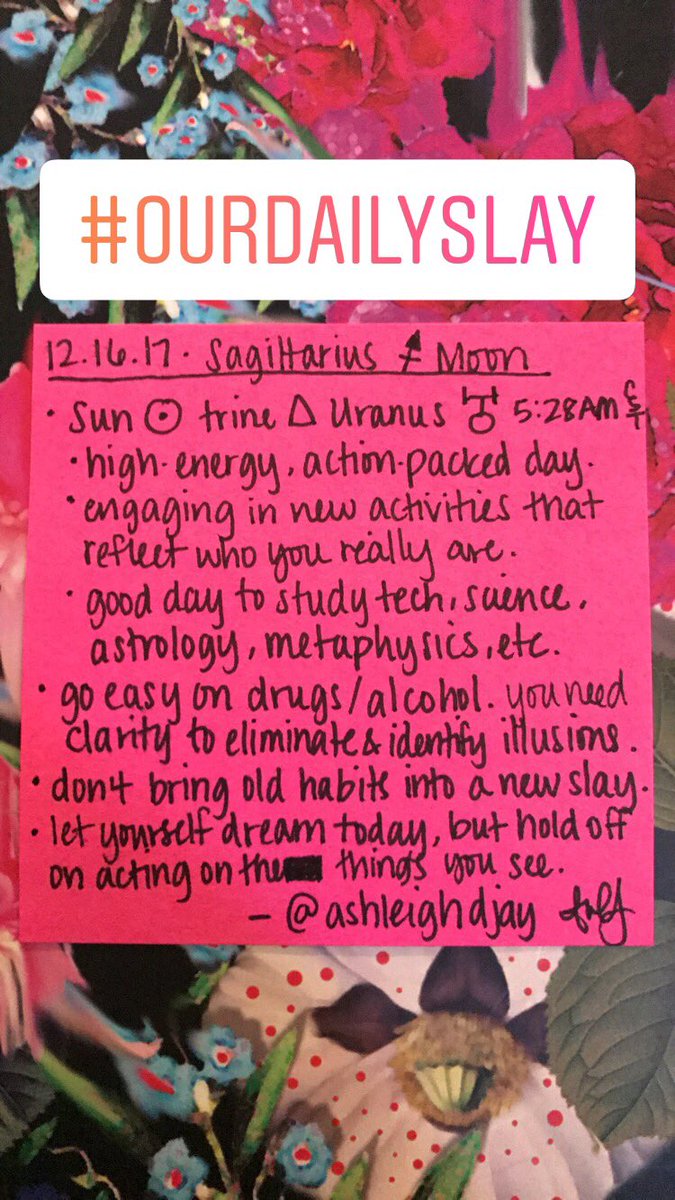 #OURDAILYSLAY
12.16.17 · Sagittarius ♐ Moon
· Sun ☉ trine △ Uranus ♅ 5:28AM CST
· high-energy, action-packed day.
· engaging in new activities that
reflect who you really are.
· good day to study tech, science,
astrology, metaphysics, etc.
· go easy on drugs/alcohol. you need
clarity to eliminate & identify illusions.
· don't bring old habits into a new slay.
· let yourself dream today, but hold off
on acting on the things you see.
— @ashleighdjay